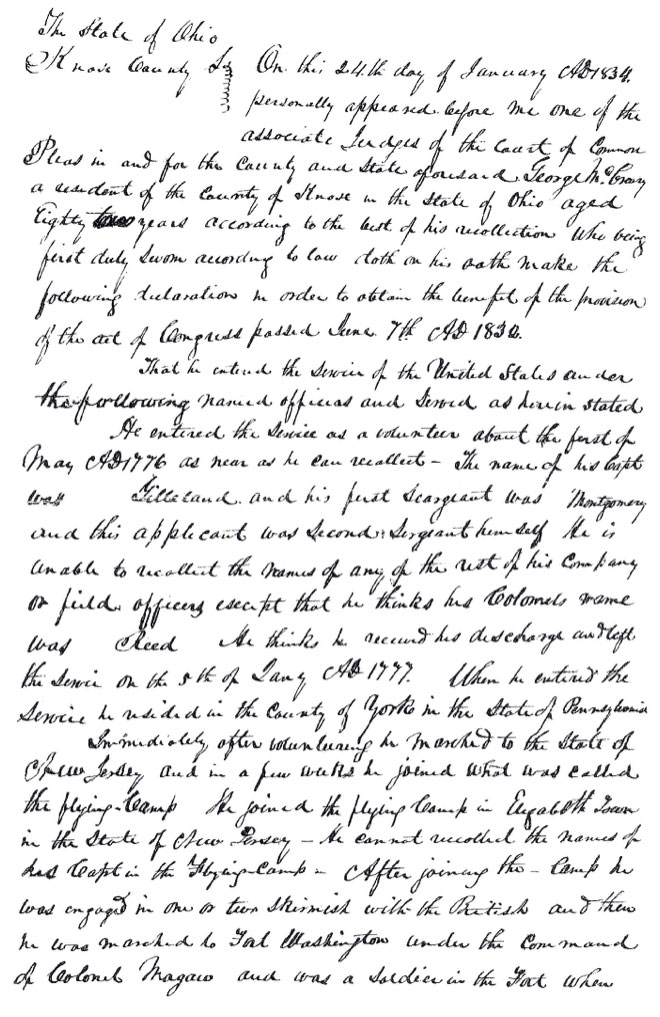 The State of Ohio
Knox County Ss
On this 24th day of January AD 1834.
personally appeared before me one of the
associate Judges of the Court of Common
Pleas in and for the County and State aforesaid George McCrary
a resident of the County of Knox in the State of Ohio aged
Eighty two years according to the best of his recollection Who being
first duly Sworn acording to law doth on his oath make the
following declaration in order to obtain the benefit of the provision
of the act of Congress passed June 7th AD 1832.
That he entered the Service of the United States under
the following named officers and Served as herein stated
He entered the Service as a volunteer about the first of
May AD 1776 as near as he can recollect – The name of his Capt
was Gilleland and his first Seargeant was Montgomery
and this applicant was Second Sergeant himself He is
unable to recollect the names of any of the rest of his Company
or field officers except that he thinks his Colonels name
was Reed He thinks he received his discharge and left
the Servic on the 5th of Jany AD 1777. When he entered the
Service he resided in the County of York in the State of Pennsylvania
Immediately after volunteering he marched to the State of
New Jersey and in a few weeks he joined what was called
the flying-Camp He joined the flying Camp in Elizabeth Town
in the State of New Jersey – He cannot recollect the names of
his Capt in the Flying-Camp – After joining the – Camp he
was engaged in one or two Skirmish with the British and then
he was marched to Fort Washington under the Command
of Colonel Magaw and was a Soldier in the Fort when